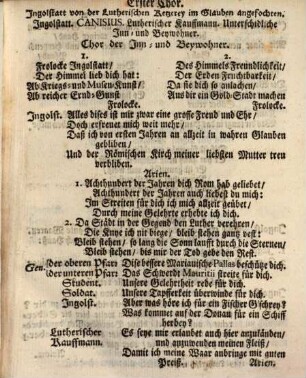 Erster Chor.
Ingolstatt von der Lutherischen Ketzerey im Glauben angefochten.
Ingolstatt. CANISIUS. Lutherischer Kauffmann. Unterschidliche
Inn- und Beywohner.
Chor der Inn- und Beywohner.
1.
Frolocke Ingolstatt/
Der Himmel lieb dich hat:
Ab Kriegs- und Musen-Kunst/
Ab reicher Ernd-Gunst
Frolocke.
2.
Des Himmels Freundlichkeit/
Der Erden Fruchtbarkeit/
Da sie dich so anlachen/
Aus dir ein Gold-Stadt machen
Frolocke.
Ingolst. Alles dises ist mir zwar eine grosse Freud und Ehr/
Doch erfreuet mich weit mehr/
Daß ich von ersten Jahren an allzeit in wahren Glauben
gebliben/
Und der Römischen Kirch meiner liebsten Mutter treu
verbliben.
Arien.
1. Achthundert der Jahren dich Rom hab geliebet/
Achthundert der Jahren auch liebest du mich:
Im Streiten für dich ich mich allzeit geübet/
Durch meine Gelehrte erhebte ich dich.
2. Da Städt in der Gegend den Luther verehrten/
Die Knye ich nit biege/ bleib stehen ganz vest:
Bleib stehen/ so lang die Sonn laufft durch die Sternen/
Bleib stehen/ bis mir der Tod gebe den Rest.
der oberen Pfarr Dise bessere Marianische Pallas beschütze dich.
Gen.
der unteren Pfarr Das Schwerdt Mauritii streite für dich.
Student. Unsere Gelehrtheit rede für dich.
Soldat. Die Tapfferkeit überwinde für dich.
Ingolst. Aber was höre ich für ein Fischer-Gschrey?
Was kommet auf der Donau für ein Schiff
herbey?
Lutherischer Es seye mir erlaubet auch hier anzuländen/
Kauffmann. und anzuwenden meinen Fleiß/
Damit ich meine Waar anbringe mit guten
Preiß. Arien.